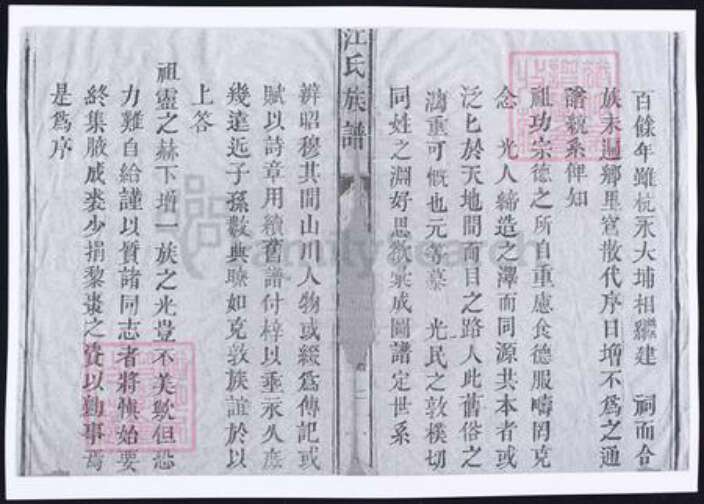 百餘年雖杭永大埔相繼建 祠而合
族未遍鄉里窵散代序日增不為之通
譜親系俾知
祖功宗德之所自重應食德服疇罔克
念 光人締造之澤而同源共本者或
泛匕於天地間而目之路人此舊俗之
澆重可慨也元等慕 光民之敦樸切
同姓之淵好思欲彙成圖譜定世系
江氏族譜
辨昭穆其間山川人物或綴為傳記或
賦以詩章用續舊譜付梓以垂永久庶
幾遠近子孫數典瞭如克敦族誼於以
上答
祖靈之赫下增一族之光豈不美歟但恐
力難自給謹以質諸同志者將慎始要
終集腋成裘少捐黎棗之資以勷事焉
是為序
FamilySearch